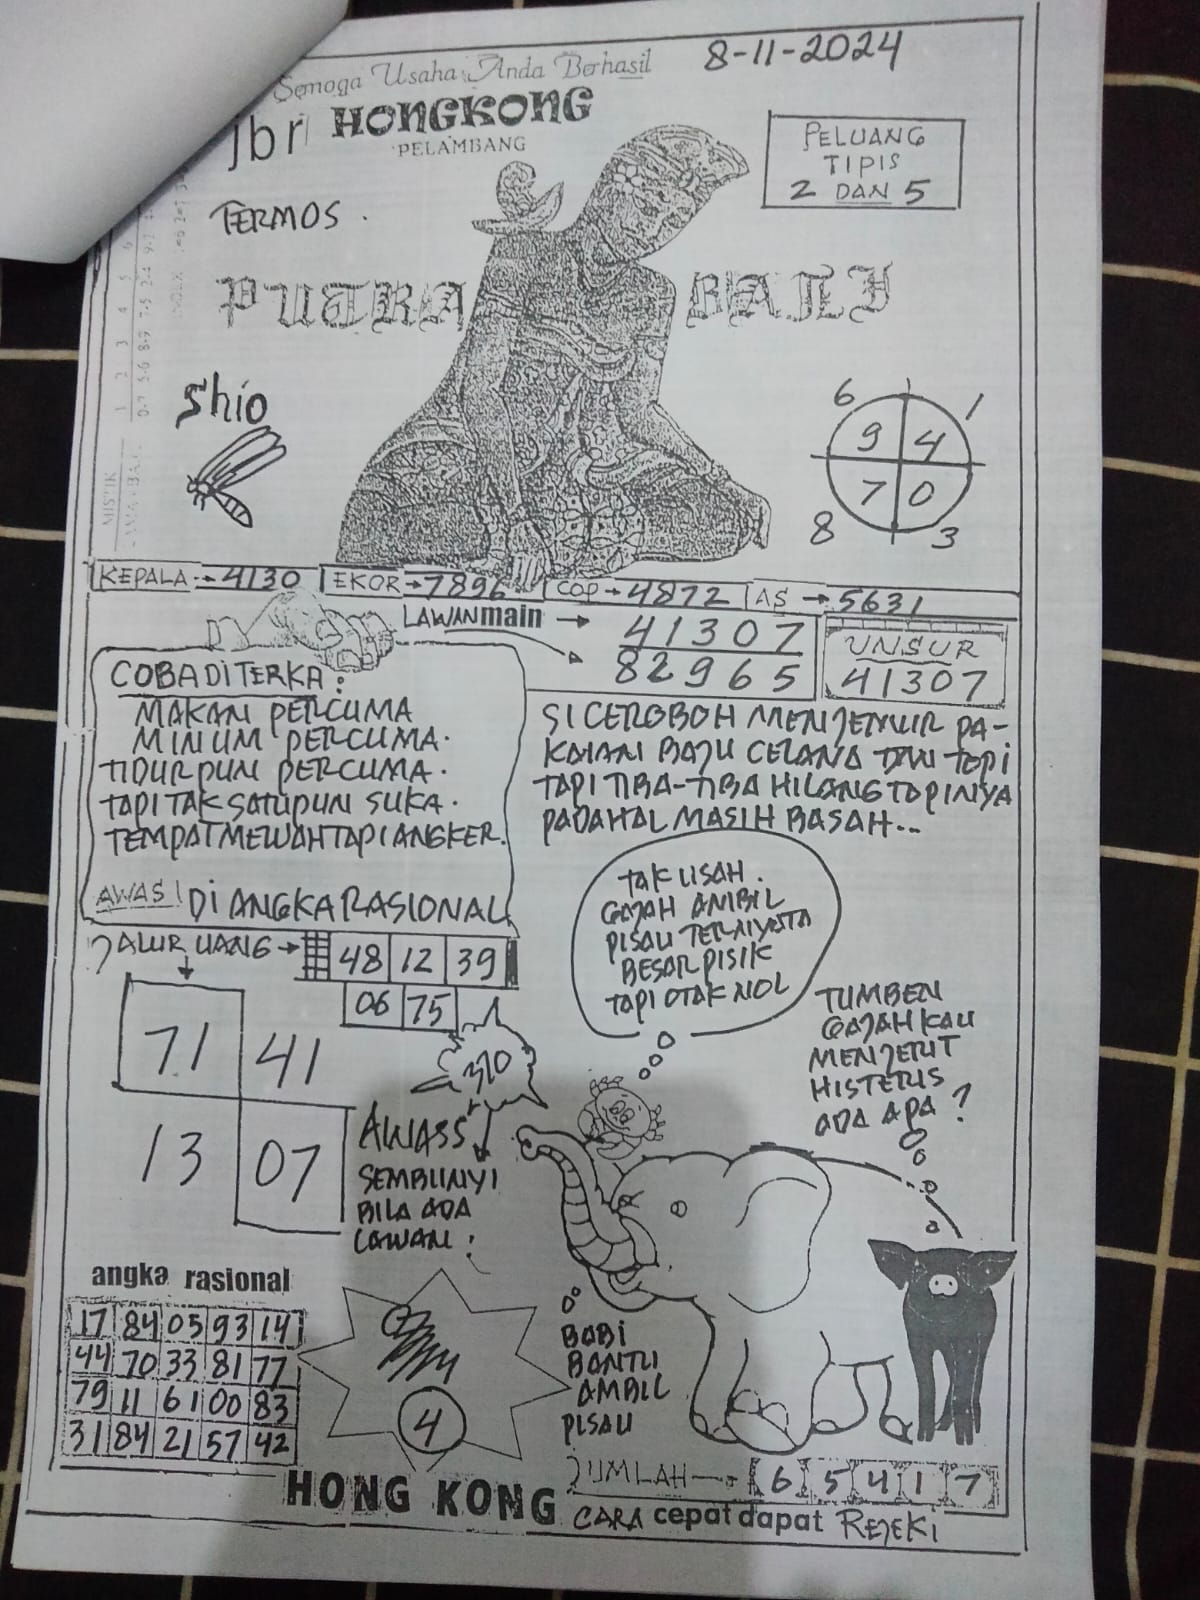 Semoga Usaha Anda Berhasil
8-11-2024
jbr HONGKONG
PELAMBANG
PELUANG
TIPIS
2 DAN 5
TERMOS.
PUTRA BALI
Shio
6 1
9 4
7 0
8 3
MISTIK
1 2 3 4 5 6
0-7 5-6 8-9 7-5 2-4
KEPALA → 4130 EKOR → 7896 COP → 4872 AS → 5631
LAWAN main → 41307
82965
UNSUR
41307
COBA DITERKA:
MAKAN PERCUMA
MINUM PERCUMA.
TIDUR PUN PERCUMA.
TAPI TAK SATUPUN SUKA.
TEMPAT MEWAH TAPI ANGKER.
AWAS! DI ANGKA RASIONAL
SI CEROBOH MENJEMUR PA-
KAIAN BAJU CELANA DAN TOPI
TAPI TIBA-TIBA HILANG TOPINYA
PADAHAL MASIH BASAH...
JALUR UANG → 48 12 39
06 75
71 41
13 07
370
AWASS
SEMBUNYI
BILA ADA
LAWAN:
TAK USAH.
GAJAH AMBIL
PISAU TERNYATA
BESAR PISIK
TAPI OTAK NOL
TUMBEN
GAJAH KAU
MENJERIT
HISTERIS
ADA APA?
BABI
BANTU
AMBIL
PISAU
angka rasional
17 84 05 93 14
44 70 33 81 77
79 11 61 00 83
31 84 21 57 42
4
JUMLAH → 6 5 4 1 7
HONG KONG CARA cepat dapat REJEKI